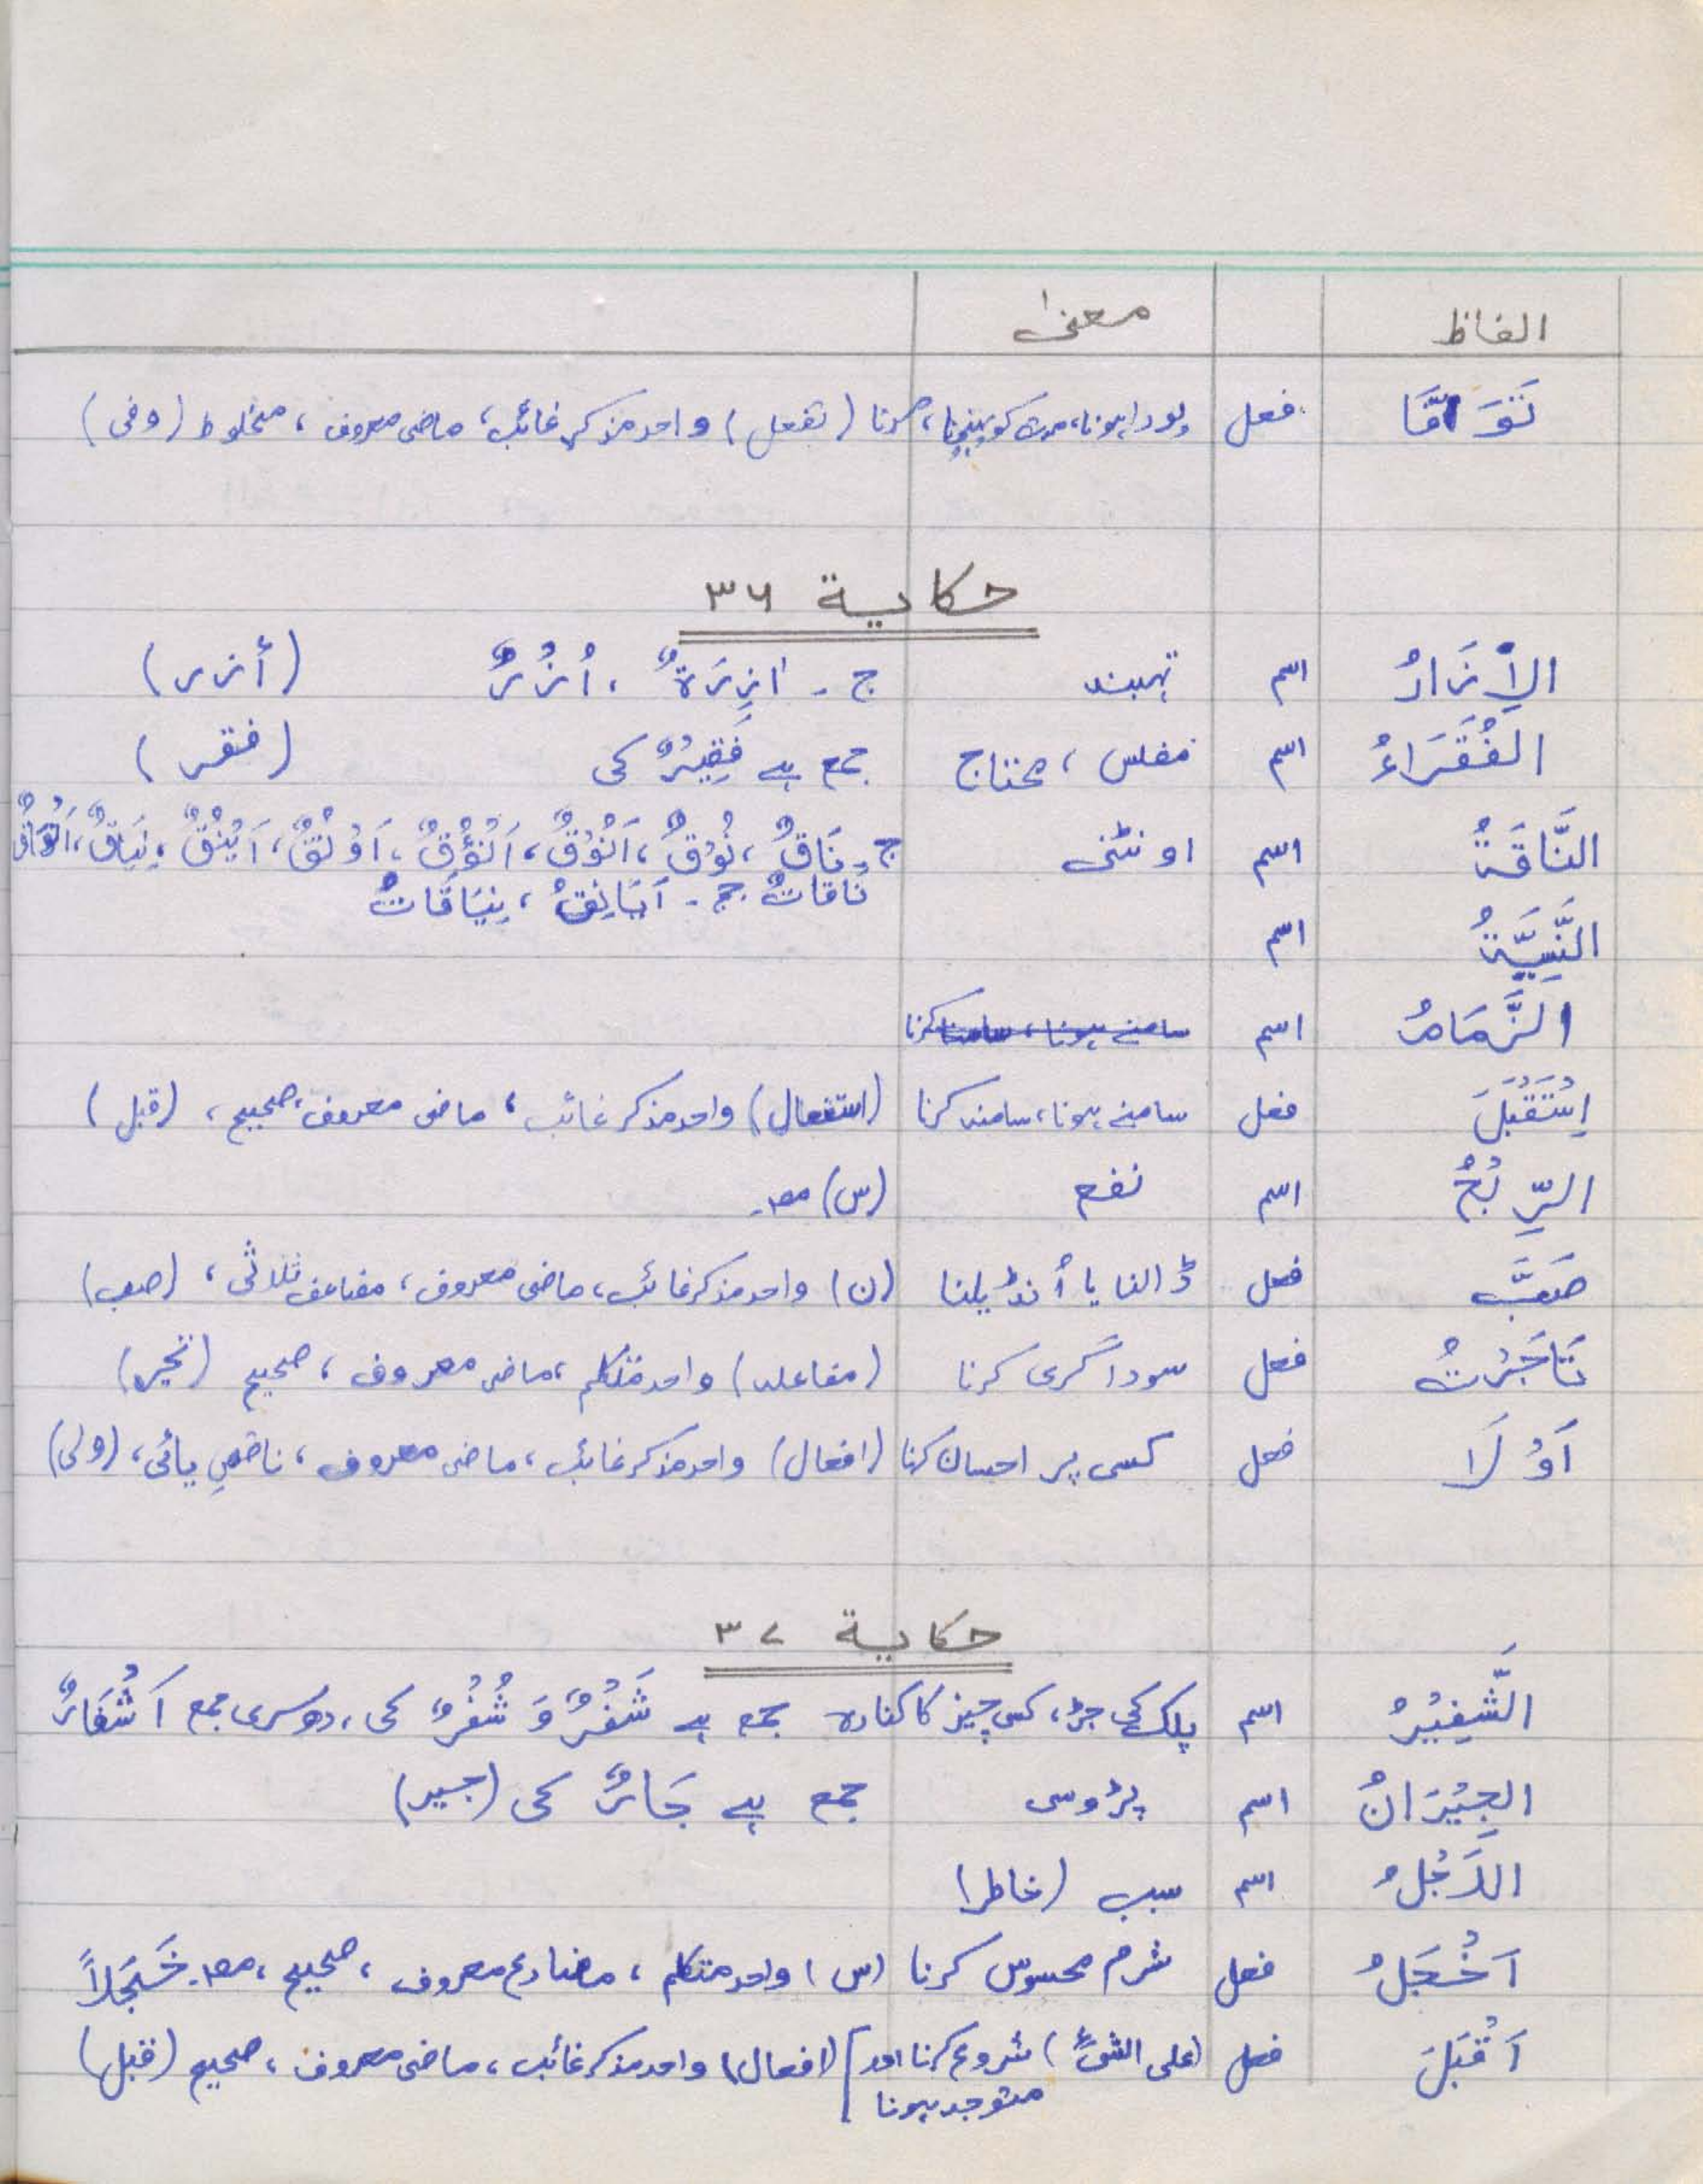 الفاظ معنیٰ
تَوَافَّا فعل پورا ہونا، مدت کو پہنچنا، مرنا (تفعل) واحد مذکر غائب، ماضی معروف، مخلوط (وفی)
حکایة ۳۶
الْاِزَارُ اسم تہبند ج ۔ اٰزِرَةٌ ، اُزُرٌ (أزر)
الفُقَرَاءُ اسم مفلس ، محتاج جمع ہے فَقِیْرٌ کی (فقر)
النَّاقَةُ اسم اونٹنی ج ۔ نَاقٌ ، نُوْقٌ ، اَنْوُقٌ ، اَنْؤُقٌ ، اَوْنُقٌ ، اَیْنُقٌ ، نِیَاقٌ ، اَنْوَاقٌ
نَاقَاتٌ جج ۔ اَیَانِقُ ، نِیَاقَاتٌ
النَّسِیَّةُ اسم
الزَّمَامُ اسم سامنے ہونا ، سامنا کرنا
اِسْتَقْبَلَ فعل سامنے ہونا ، سامنہ کرنا (استفعال) واحد مذکر غائب ، ماضی معروف ، صحیح ، (قبل)
الرِّبْحُ اسم نفع (س) مص۔
صَبَّ فعل ڈالنا یا اُنڈیلنا (ن) واحد مذکر غائب ، ماضی معروف ، مضاعف ثلاثی ، (صب)
تَاجَرْتُ فعل سوداگری کرنا (مفاعلہ) واحد متکلم ، ماضی معروف ، صحیح (تجر)
اَوْلَا فعل کسی پر احسان کرنا (افعال) واحد مذکر غائب ، ماضی معروف ، ناقصِ یائی ، (ولی)
حکایة ۳۷
الشَّفِیْرُ اسم پلک کی جڑ ، کسی چیز کا کنارہ جمع ہے شَفْرٌ وَ شُفْرٌ کی ، دوسری جمع اَشْفَارٌ
الجِیْرَانُ اسم پڑوسی جمع ہے جَارٌ کی (جیر)
الَاَجْلُ اسم سبب (خاطر)
اَخْجَلُ فعل شرم محسوس کرنا (س) واحد متکلم ، مضارع معروف ، صحیح ، مص۔ خَجَلاً
اَقْبَلَ فعل (علی الشیٔ) شروع کرنا اور (افعال) واحد مذکر غائب ، ماضی معروف ، صحیح (قبل)
متوجہ ہونا